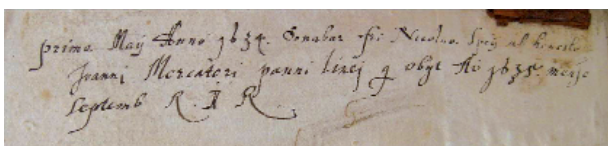 primo Maÿ Anno 1634. Donabar fri Nicolao ab honesto
Joanni Mercatori panni linej q obyt Ao 1635. mense
Septemb R. I R.